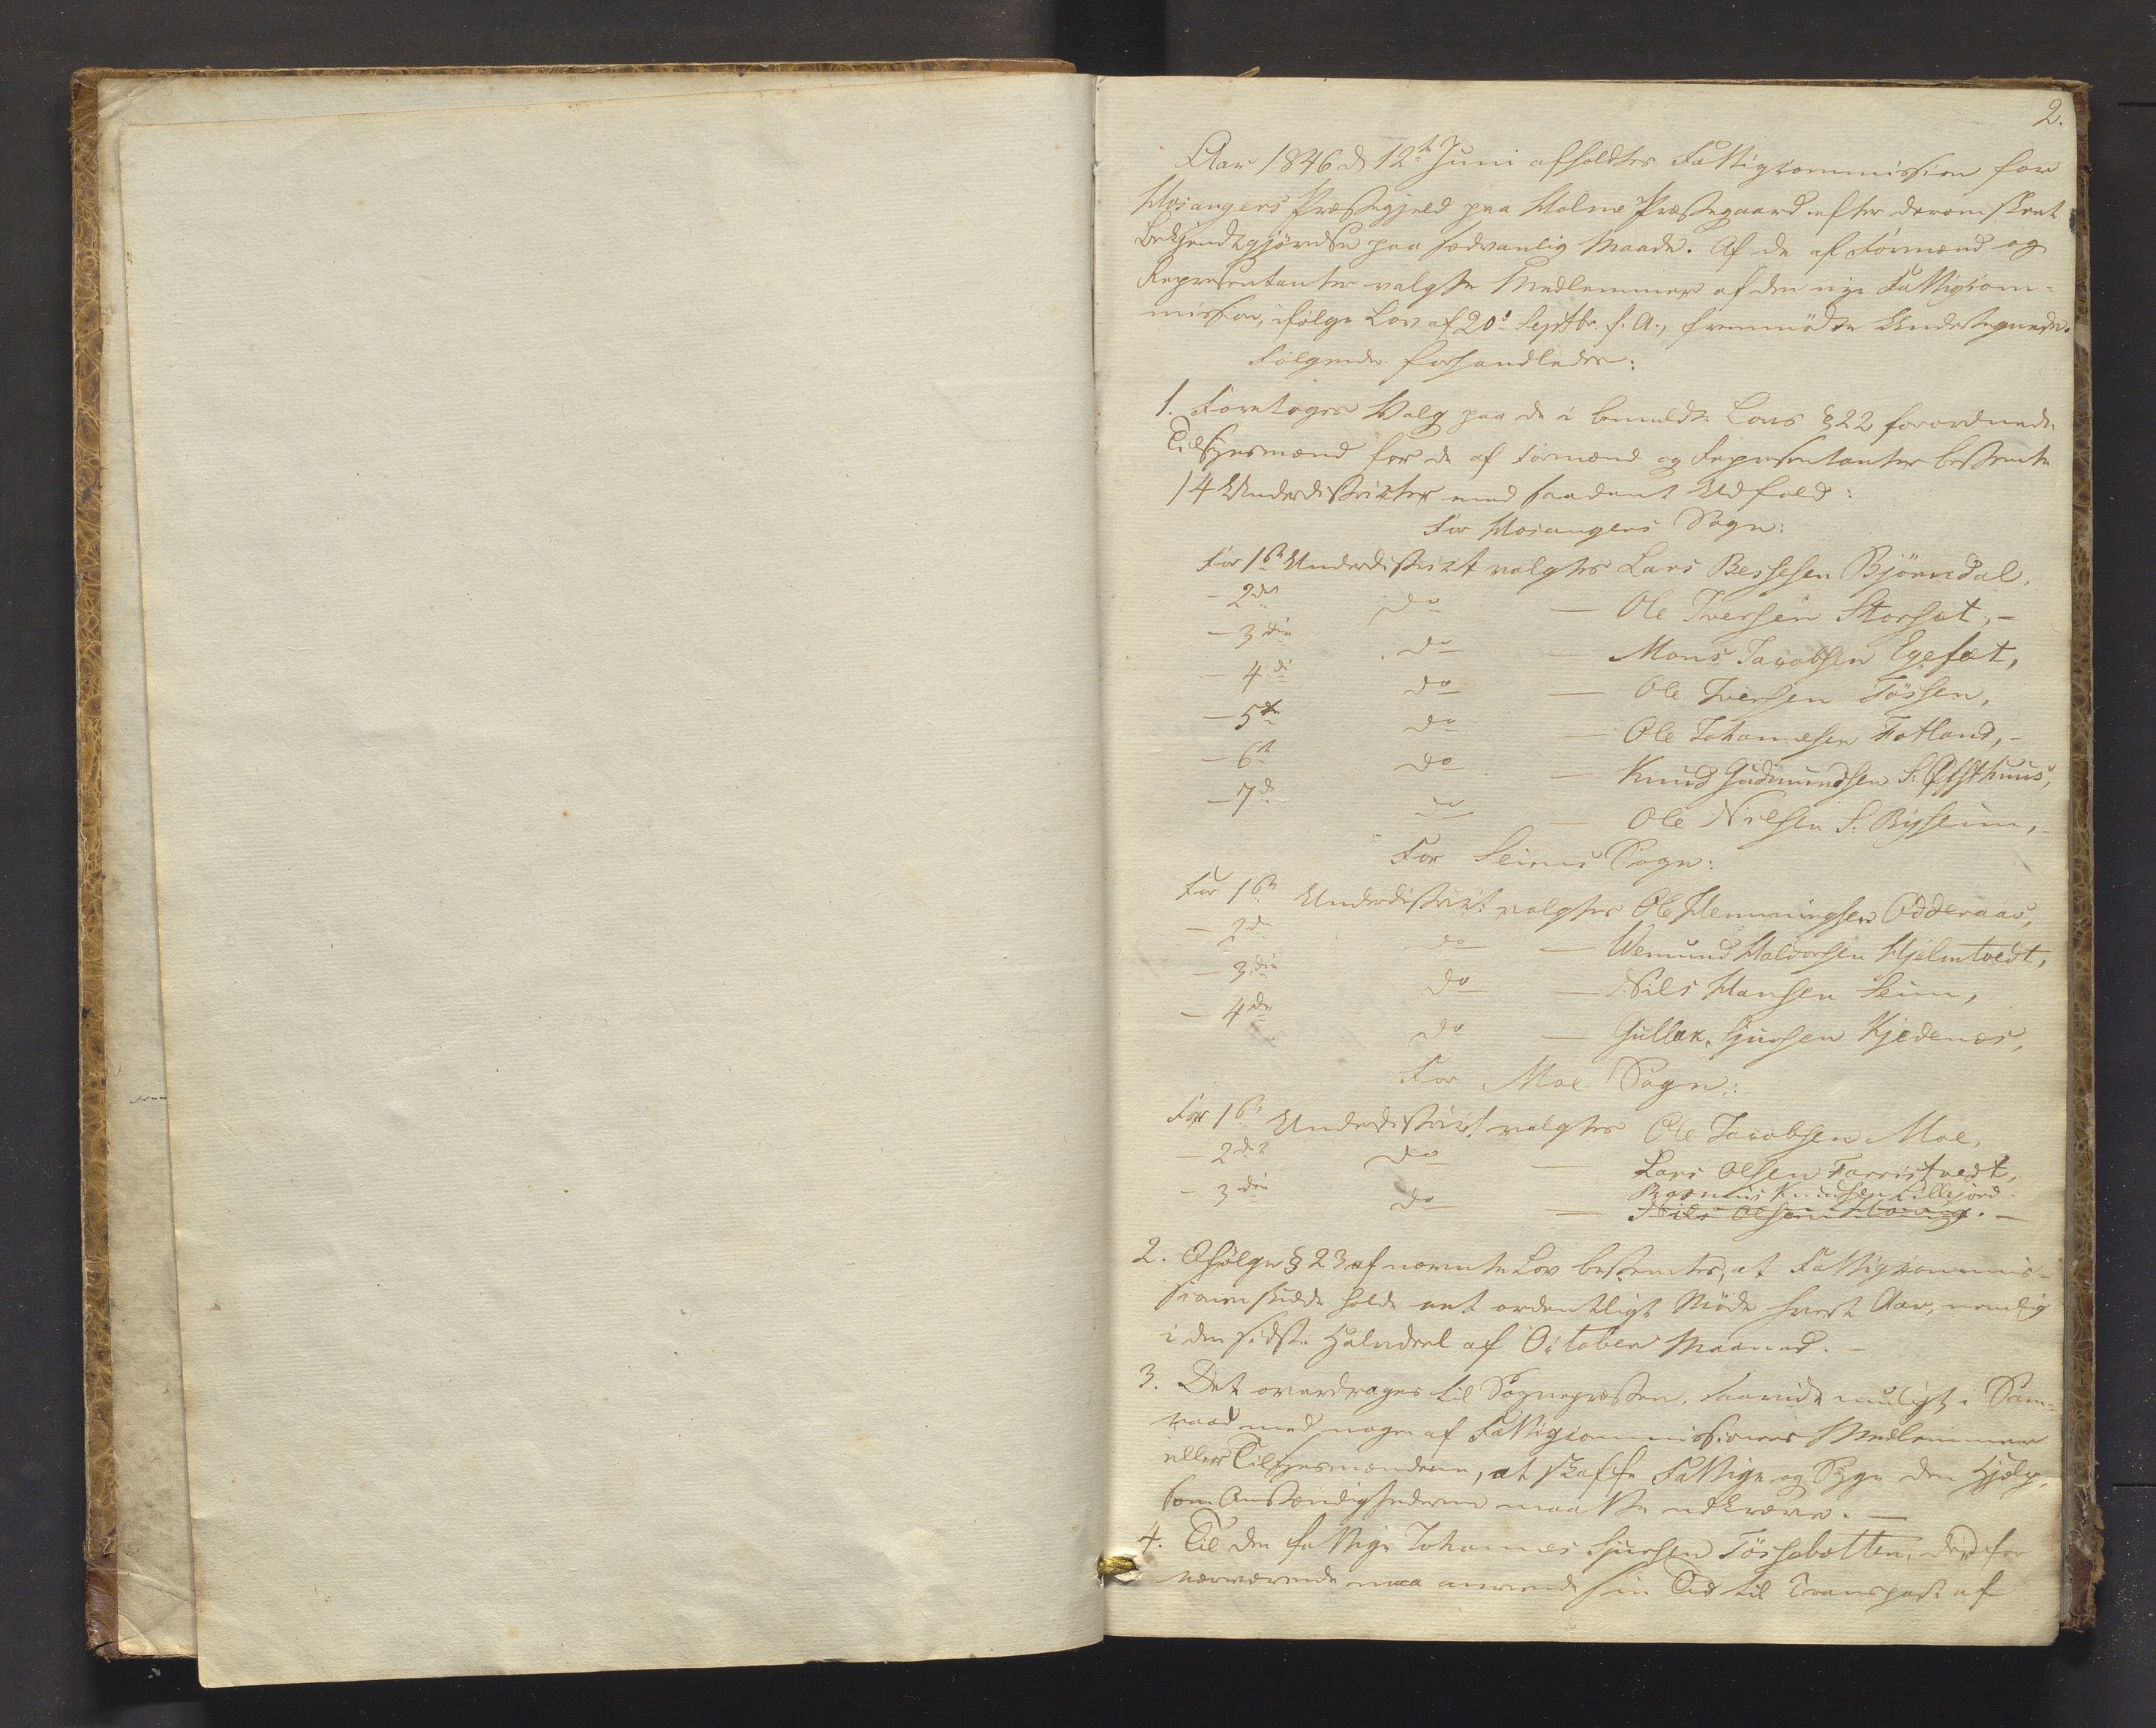 2.
Aar 1846 d. 12te Juni afholdtes Fattigcommission for
Hosangers Præstegjeld paa Holme Præstegaard efter derom skeet
Bekjendtgjørelse paa sædvanlig Maade. Af de af Formænd og
Repræsentanter valgte Medlemmer af den nye Fattigcom-
mission, ifølge Lov af 20de Septbr. f. A., fremmødte Undertegnede.
Følgende forhandledes:
1. Foretoges Valg paa de i bemeldte Lovs § 22 forordnede
Tilsynsmænd for de af Formænd og Repræsentanter bestemte
14 Underdistrikter med saadant Udfald:
For Hosangers Sogn:
For 1ste Underdistrikt valgtes Lars Bessesen Bjørndal,
- 2det do — Ole Iversen Storsæt, -
- 3die do — Mons Jacobsen Egesæt,
- 4de do — Ole Iversen Tøssen,
- 5te do — Ole Johannesen Fotland, -
- 6te do — Knud Gudmundsen S. Øfsthuus,
- 7de do — Ole Nilsen S. Byseim, -
For Seims Sogn:
For 1ste Underdistrikt valgtes Ole Hemmingsen Odderaas,
- 2det do — Vemund Haldorsen Hjelmtvedt,
- 3die do — Nils Hansen Seim,
- 4de do — Gullak Sjursen Kjedenæs,
For Moe Sogn:
For 1ste Underdistrikt valgtes Ole Jacobsen Moe,
- 2det do — Lars Olsen Farristvedt,
Rasmus Knudsen Lillejord.
- 3die do — Nils Olsen . —
2. Ifølge § 23 af nævnte Lov bestemtes, at Fattigcommis-
sionen skulde holde eet ordentligt Møde hvert Aar, nemlig
i den sidste Halvdeel af October Maaned. —
3. Det overdrages til Sognepræsten, saavidt muligt i Sam-
raad med nogen af Fattigcommissionens Medlemmer
eller Tilsynsmændene, at skaffe Fattige og Syge den Hjelp,
som Omstændighederne maatte udkræve. —
4. Til den fattige Johannes Sjursen Tøssebotten, der for
nærværende maa anvende sin Tid til Transport af